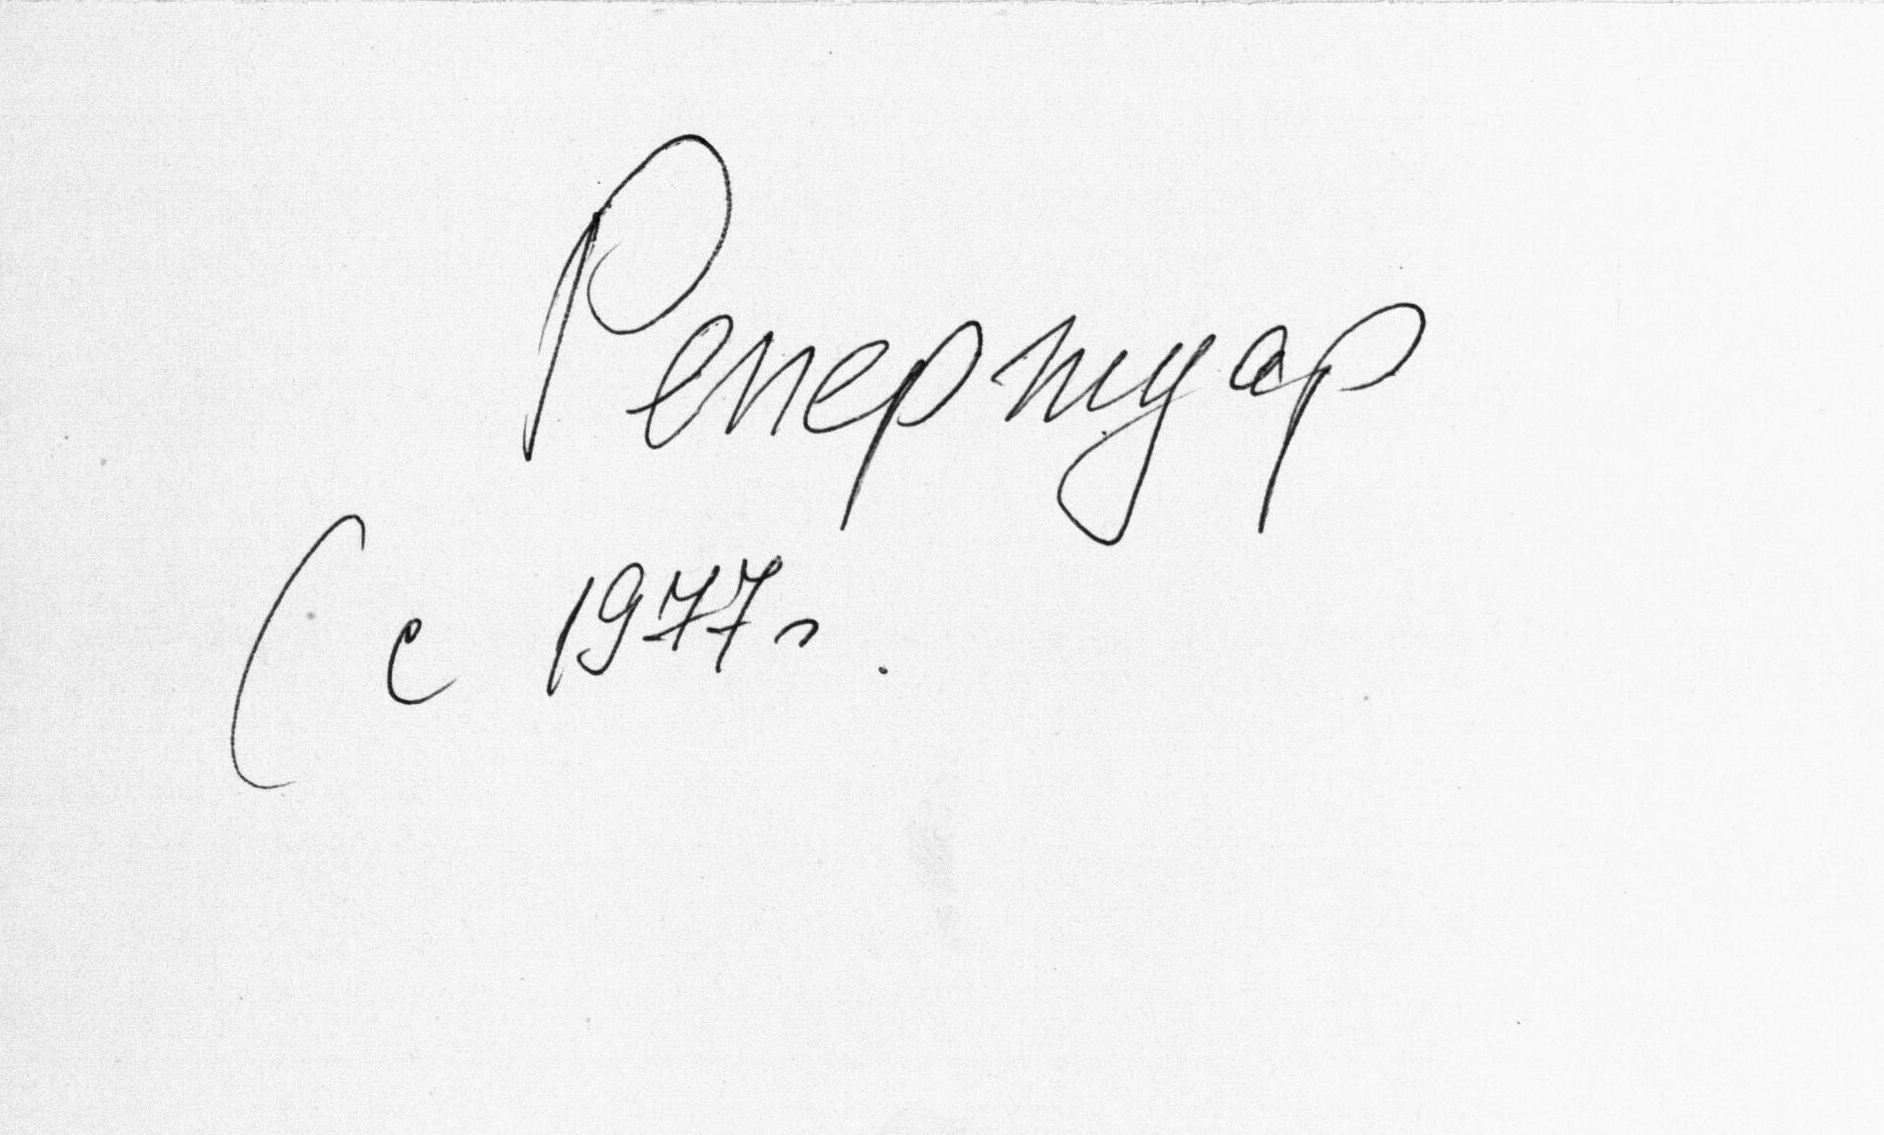 Репертуар
(с 1977г.